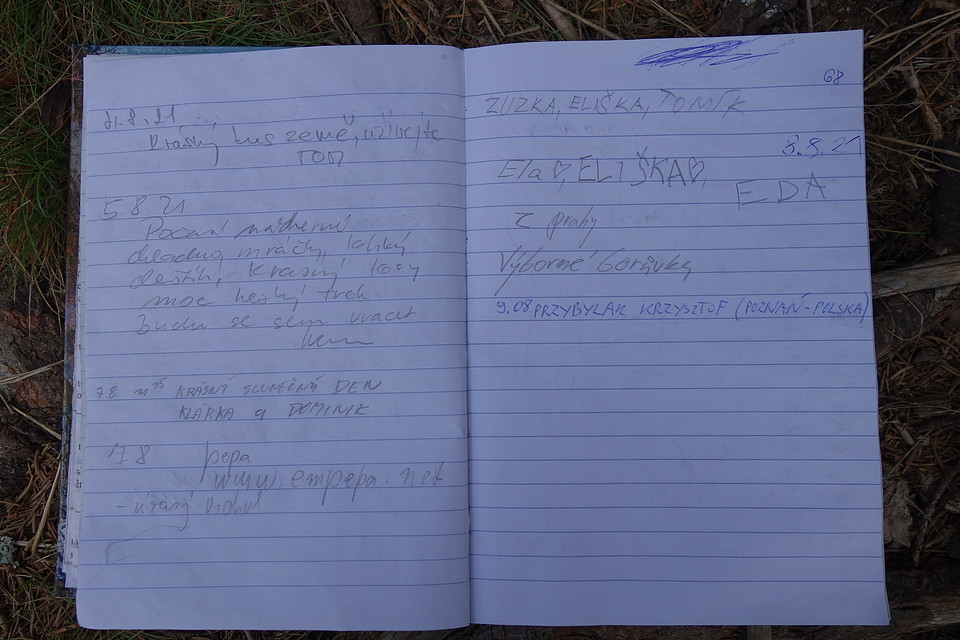 8.21
Krásný kus země, užívejte
TOM
5 8 21
Počasí nádherné
chladno, mráčky, lehký
deštík, krásný
moc hezký trek
Budu se sem vracet
7.8. 11 15 KRÁSNÝ SLUNEČNÝ DEN
KLÁRKA a DOMINIK
7 8 pepa
www.empepa.net
68
ZUZKA, ELIŠKA, TOMÍK
8.8.21
Ela ♡, ELIŠKA♡,
EDA
z prahy
Výborné borůvky
9.08 PRZYBYLAK KRZYSZTOF (POZNAŃ-POLSKA)